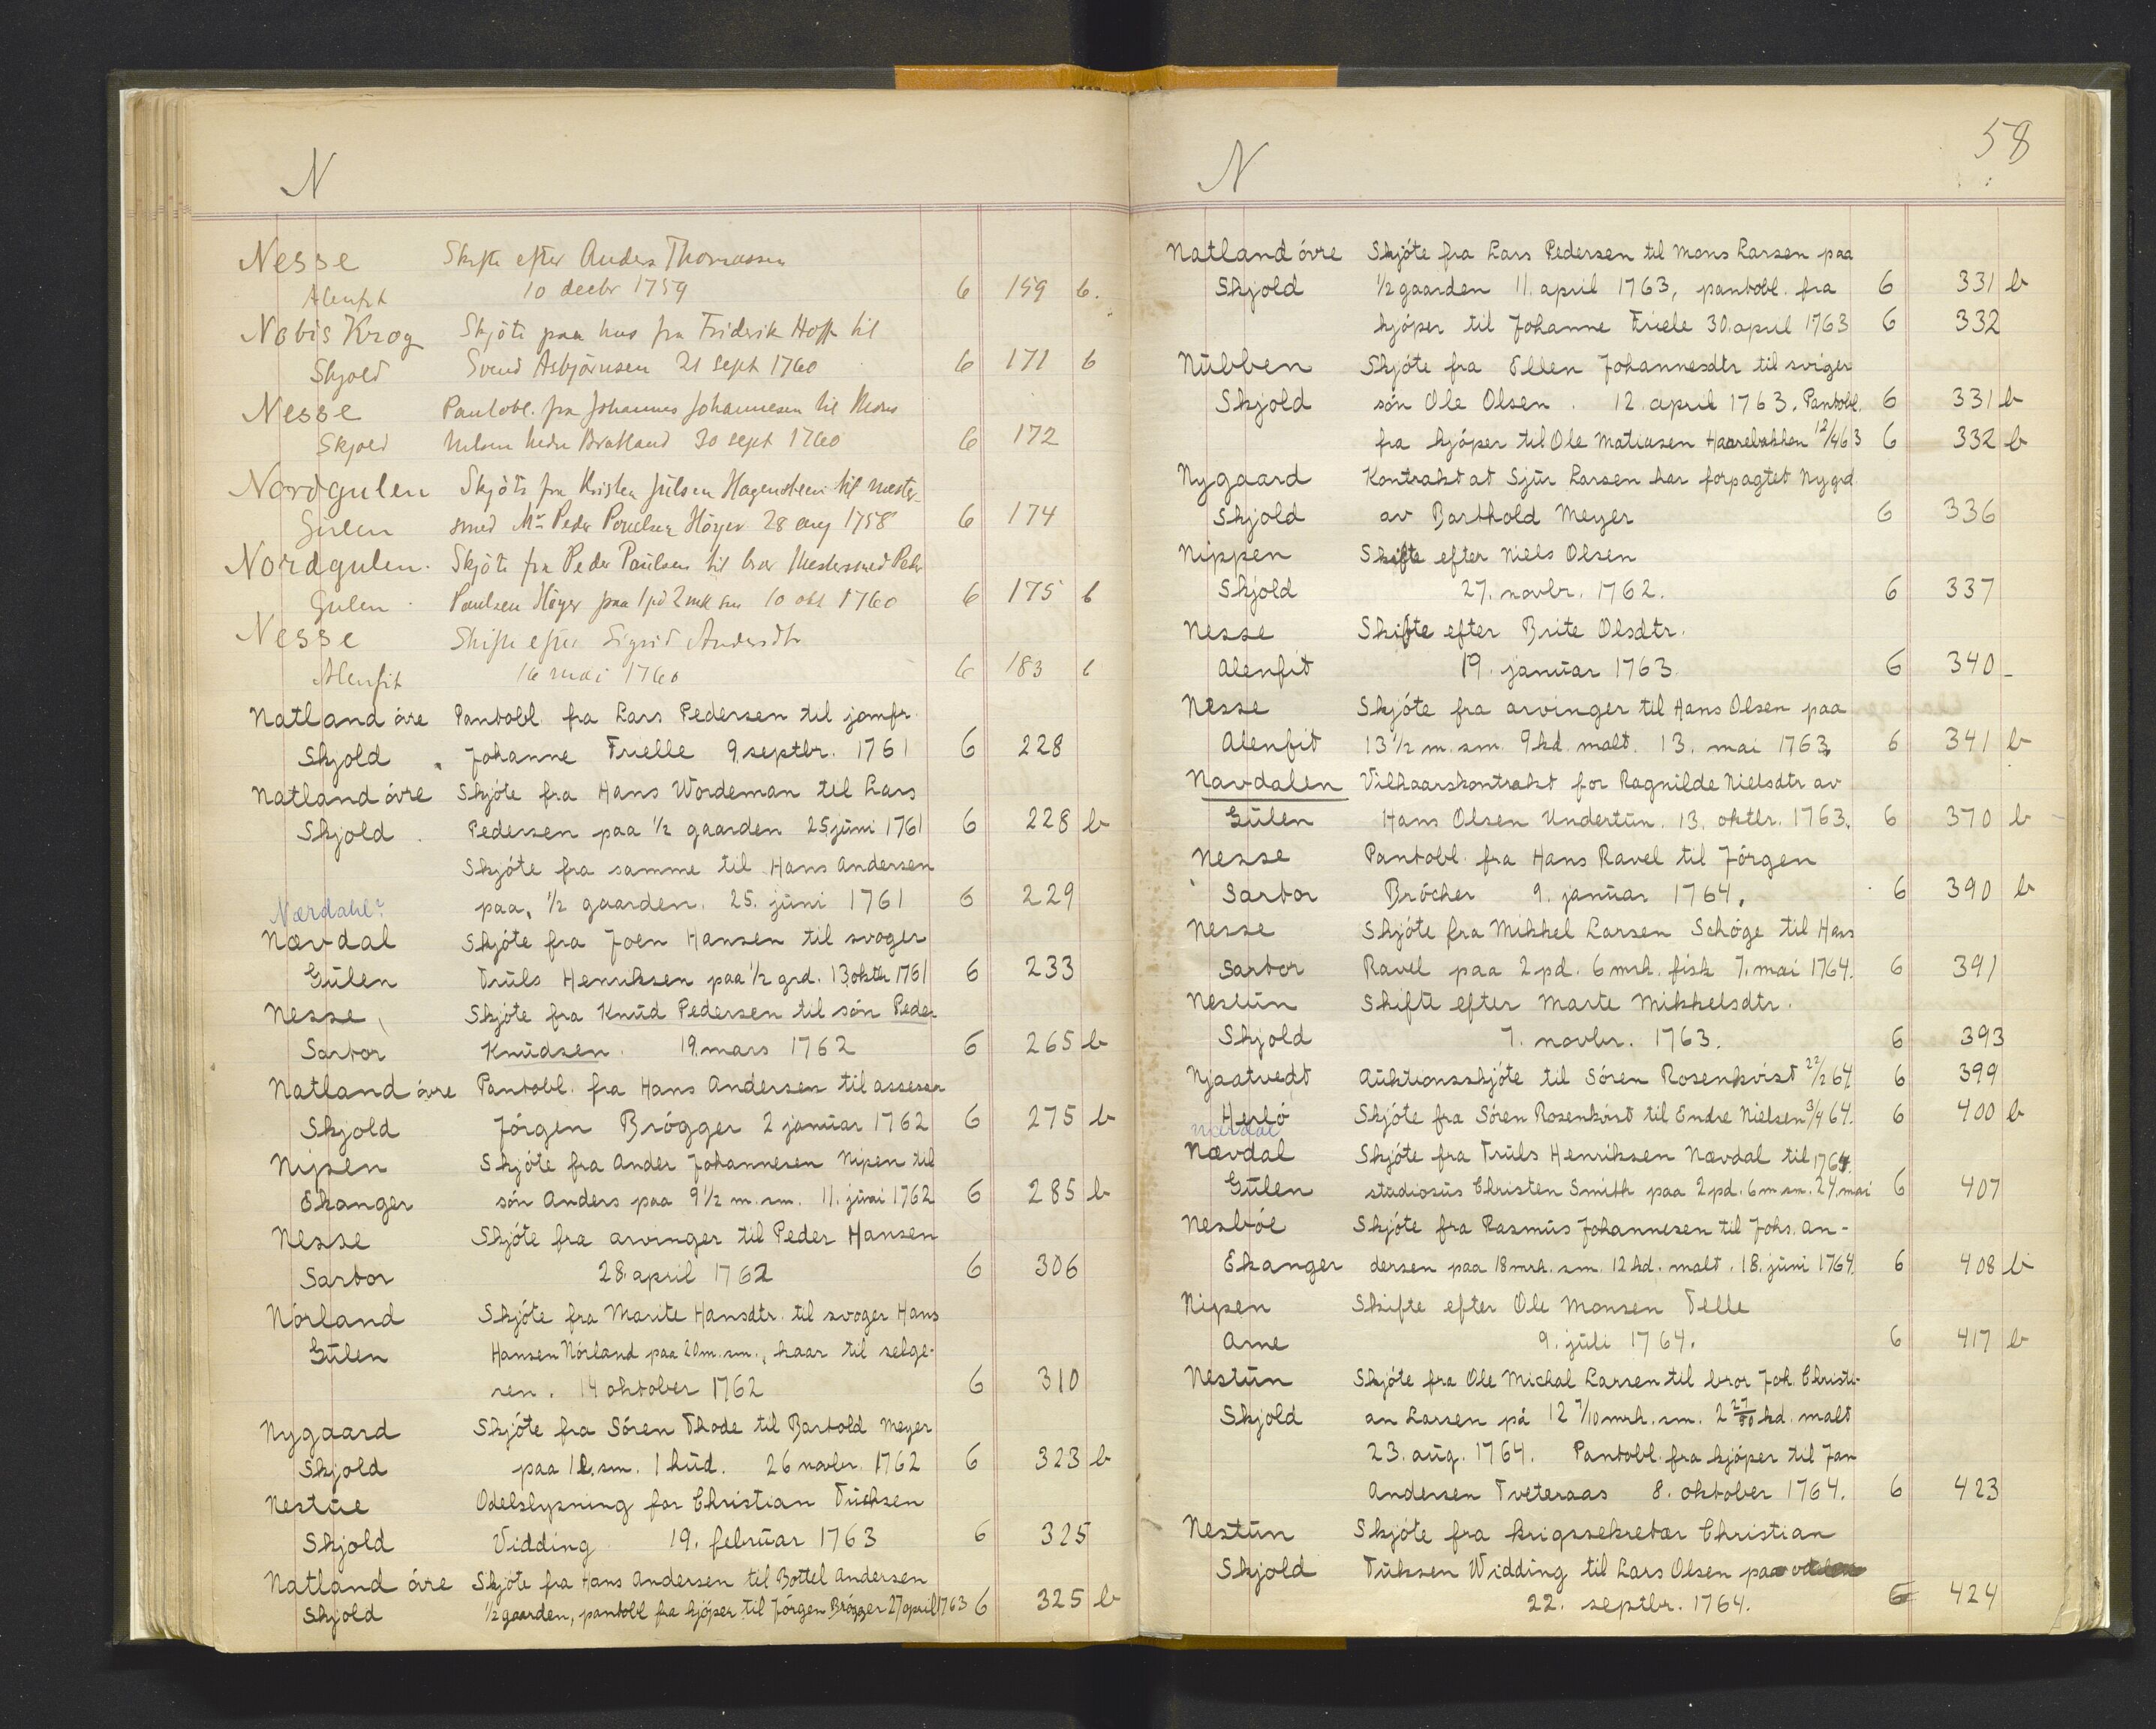 N
Nesse Skifte efter Anders Thomassen
Alenfit 10 decbr 1759 6 159 b.
Nobis Krog Skjöte paa hus fra Friderik Hoff til
Skjold Svend Asbjörnsen 21 sept 1760 6 171 b
Nesse Pantobl. fra Johannes Johannesen til Mons
Skjold Nilsen nedre Bratland 30 sept 1760 6 172
Nordgulen Skjöte fra Kristen Juلsen Hagensteen til mester
Gulen smed Mr Peder Povelsen Höyer 28 aug 1758 6 174
Nordgulen. Skjöte fra Peder Paulsen til bror Mestersmed Peder
Gulen. Paulsen Höyer paa 1 pd 2 mk sm 10 okt 1760 6 175 b
Nesse Skifte efter Sigrid Andersdtr
Alenfit 16 mai 1760 6 183 b
Natland övre Pantobl fra Lars Pedersen til jomfr.
Skjold Johanne Frielle 9. septbr. 1761 6 228
Natland övre Skjöte fra Hans Wordeman til Lars
Skjold. Pedersen paa 1/2 gaarden 25 juni 1761 6 228 b
Skjöte fra samme til Hans Andersen
Nærdahl? paa 1/2 gaarden. 25. juni 1761 6 229
Nævdal Skjöte fra Joen Hansen til svoger
Gulen Truls Henriksen paa 1/2 grd. 13. oktbr 1761 6 233
Nesse Skjöte fra Knud Pedersen til sön Peder
Sartor Knudsen. 19. mars 1762 6 265 b
Natland övre Pantobl. fra Hans Andersen til assessor
Skjold Jörgen Brögger 2 januar 1762 6 275 b
Nipen Skjöte fra Ander Johannesen Nipen til
Ekanger sön Anders paa 9 1/2 m. sm. 11. juni 1762 6 285 b
Nesse Skjöte fra arvinger til Peder Hansen
Sartor 28. april 1762 6 306
Nörland Skjöte fra Marite Hansdtr. til svoger Hans
Gulen Hansen Nörland paa 20 m. sm., kaar til selge-
ren. 14 oktober 1762 6 310
Nygaard Skjöte fra Sören Thode til Bartold Meyer
Skjold paa 1 l. sm. 1 hud. 26 novbr. 1762 6 323 b
Nestue Odelslysning for Christian Tuchsen
Skjold Vidding 19. februar 1763 6 325
Natland övre Skjöte fra Hans Andersen til Bottel Andersen
Skjold 1/2 gaarden, pantobl fra kjöper til Jörgen Brögger 27 april 1763 6 325 b
58
N
Natland övre Skjöte fra Lars Pedersen til Mons Larsen paa
Skjold 1/2 gaarden 11. april 1763, pantobl. fra 6 331 b
kjöper til Johanne Friele 30. april 1763 6 332
Nubben Skjöte fra Ellen Johannesdtr til sviger
Skjold sön Ole Olsen. 12. april 1763. Pantobl. 6 331 b
fra kjöper til Ole Matiasen Haarebakken 12/4 63 6 332 b
Nygaard Kontrakt at Sjur Larsen har forpagtet Nygrd
Skjold av Barthold Meyer 6 336
Nippen Skifte efter Niels Olsen
Skjold 27. novbr. 1762. 6 337
Nesse Skifte efter Brite Olsdtr.
Alenfit 19. januar 1763. 6 340
Nesse Skjöte fra arvinger til Hans Olsen paa
Alenfit 13 1/2 m. sm. 9 kd. malt. 13. mai 1763 6 341 b
Navdalen Vilkaarskontrakt for Ragnilde Nielsdtr av
Gulen Hans Olsen Undertun. 13. oktbr. 1763. 6 370 b
Nesse Pantobl. fra Hans Ravel til Jörgen
Sartor Bröcher 9. januar 1764. 6 390 b
Nesse Skjöte fra Mikkel Larsen Schöge til Hans
Sartor Ravel paa 2 pd. 6 mrk. fisk 7. mai 1764. 6 391
Nestun Skifte efter Marte Mikkelsdtr.
Skjold 7. novbr. 1763. 6 393
Njaatvedt Auktionsskjöte til Sören Rosenkvist 22/2 64 6 399
Herlö Skjöte fra Sören Rosenkvist til Endre Nielsen 3/4 64. 6 400 b
Nærdal
Nævdal Skjöte fra Truls Henriksen Nævdal til 1764.
Gulen studiosus Christen Smith paa 2 pd. 6 m sm. 24. mai 6 407
Nesböe Skjöte fra Rasmus Johannesen til Johs. An-
Ekanger dersen paa 18 mrk. sm. 12 kd. malt. 18. juni 1764. 6 408 b
Nipen Skifte efter Ole Monsen Telle
Arne 9. juli 1764. 6 417 b
Nestun Skjöte fra Ole Michal Larsen til bror Joh. Christi-
Skjold an Larsen på 12 7/10 mrk. sm. 2 27/50 kd. malt
23. aug. 1764. Pantobl. fra kjöper til Jan
Andersen Tveteraas 8. oktober 1764. 6 423
Nestun Skjöte fra krigssekretær Christian
Skjold Tuksen Widding til Lars Olsen paa
22. septbr. 1764. 6 424